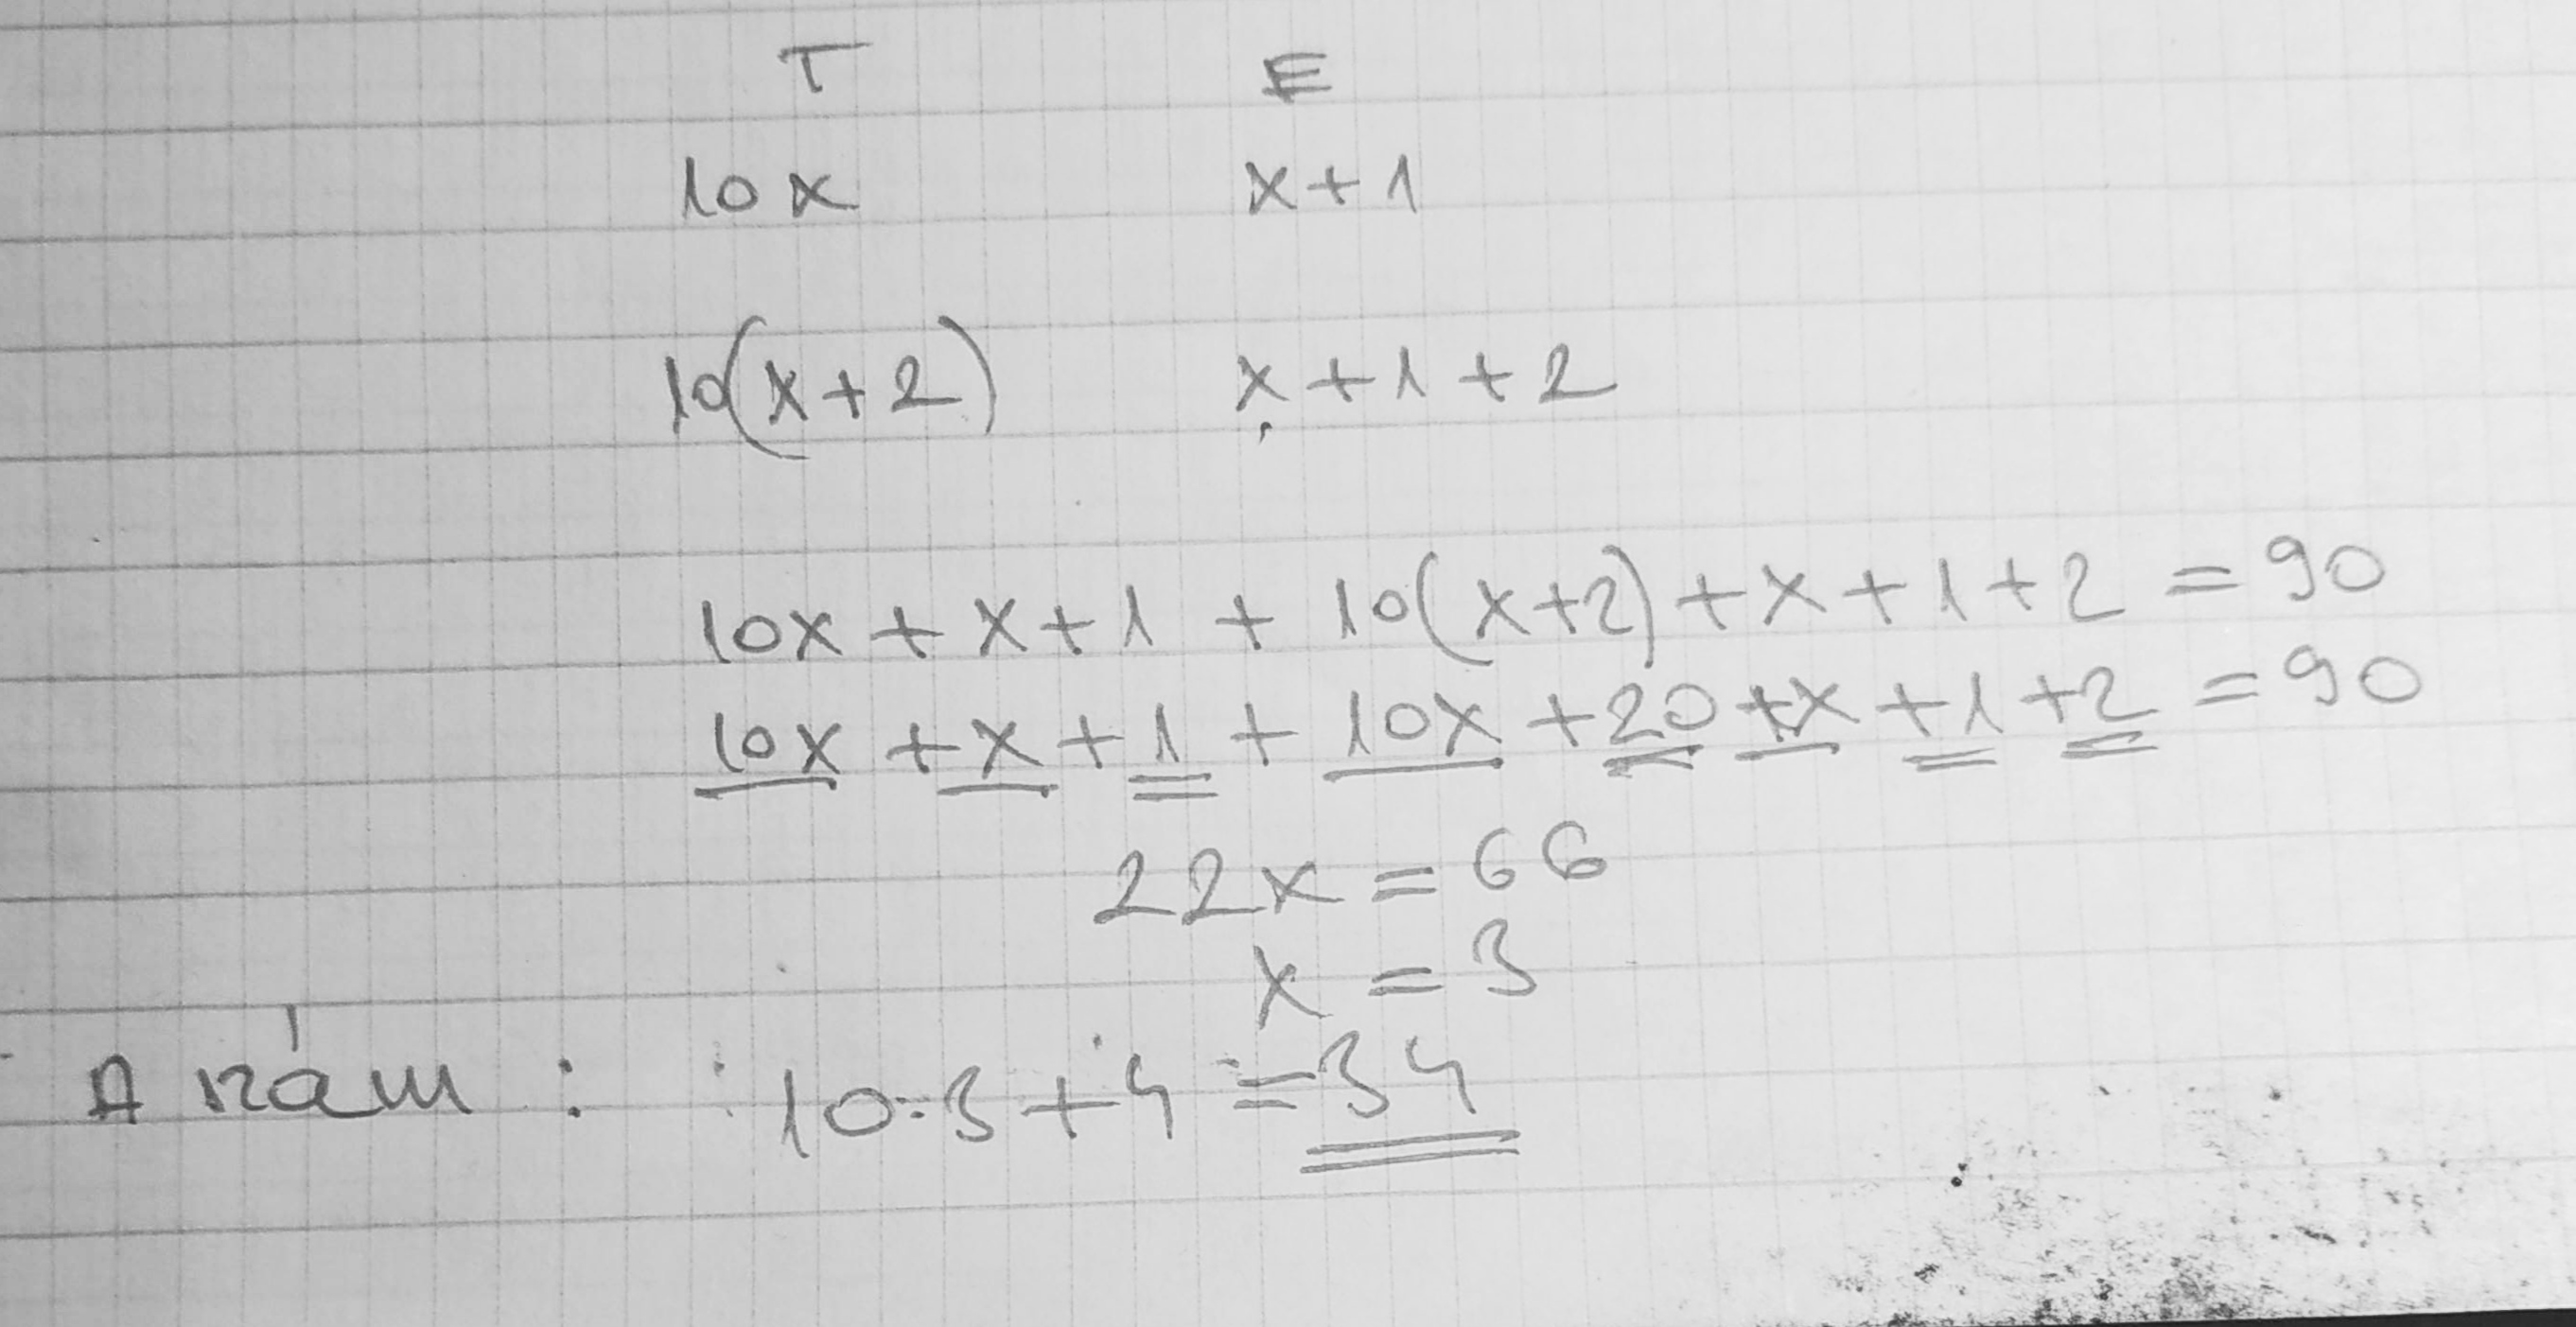 T E
10x x+1
10(x+2) x+1+2
10x + x+1 + 10(x+2)+x+1+2 = 90
10x +x+1 + 10x +20+x+1+2 = 90
22x = 66
x = 3
A szám : 10·3+4 = 34